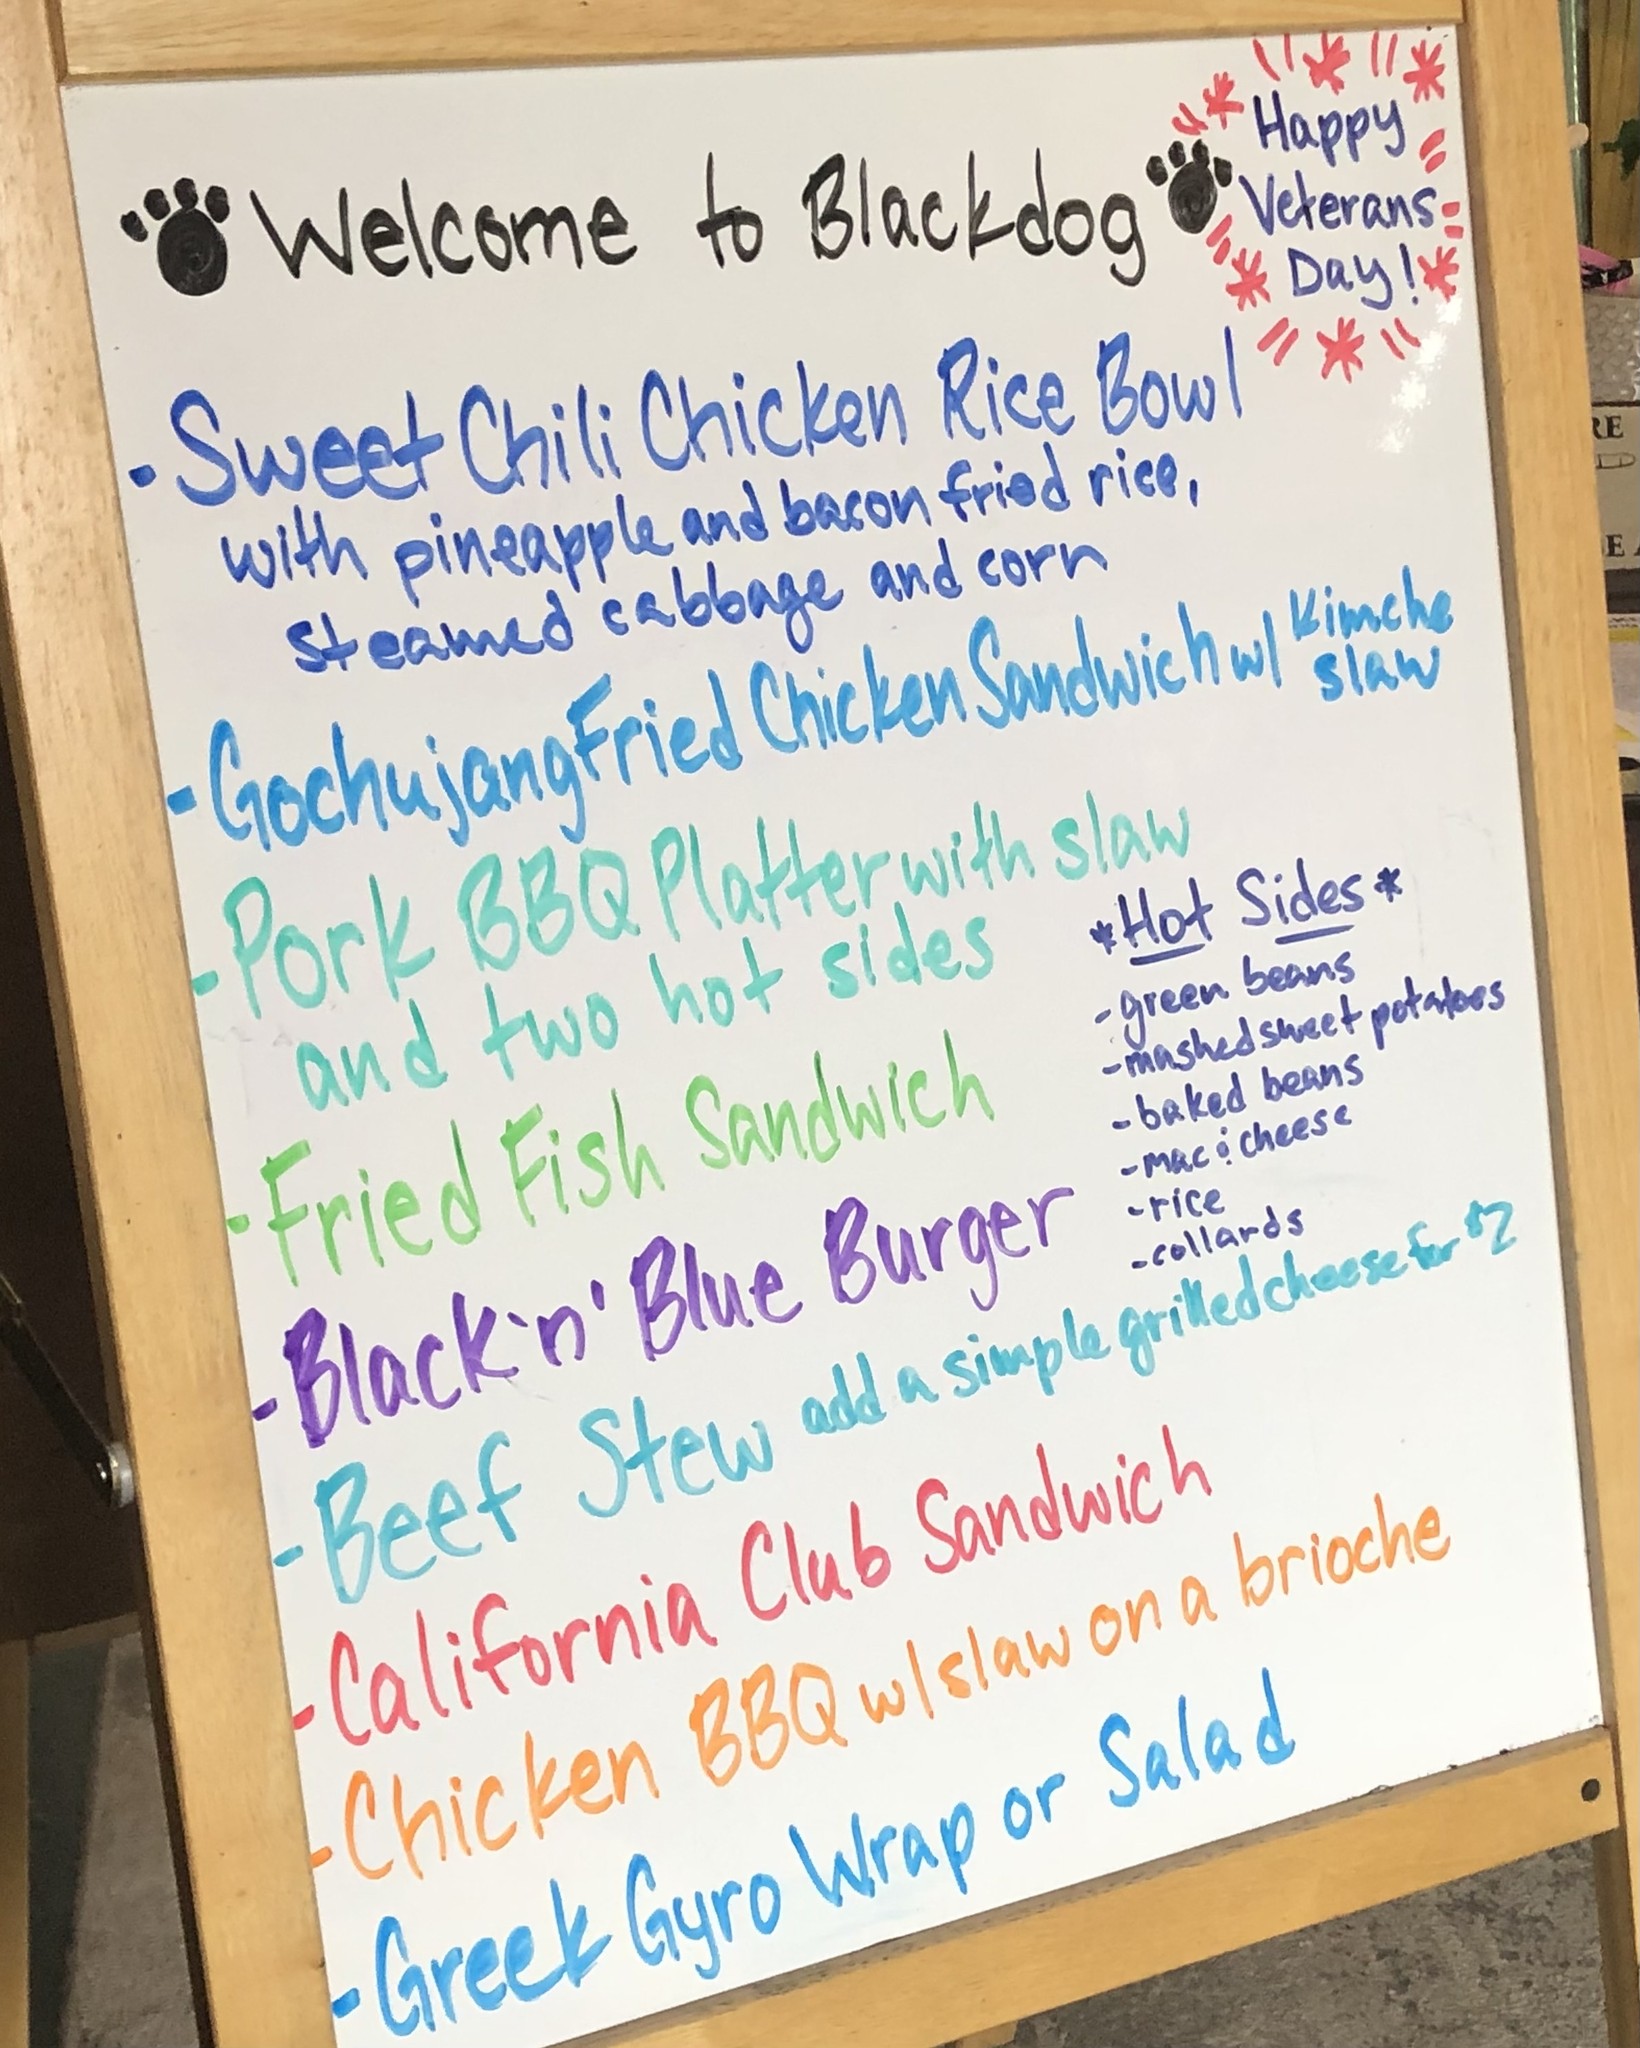 Welcome to Blackdog
Happy
Veterans
Day!
· Sweet Chili Chicken Rice Bowl
with pineapple and bacon fried rice,
steamed cabbage and corn
- Gochujang Fried Chicken Sandwich w/ Kimche
slaw
- Pork BBQ Platter with slaw
and two hot sides
*Hot Sides*
- green beans
- mashed sweet potatoes
- baked beans
- mac & cheese
- rice
- collards
- Fried Fish Sandwich
- Black 'n' Blue Burger
- Beef Stew add a simple grilled cheese for $2
- California Club Sandwich
- Chicken BBQ w/ slaw on a brioche
- Greek Gyro Wrap or Salad